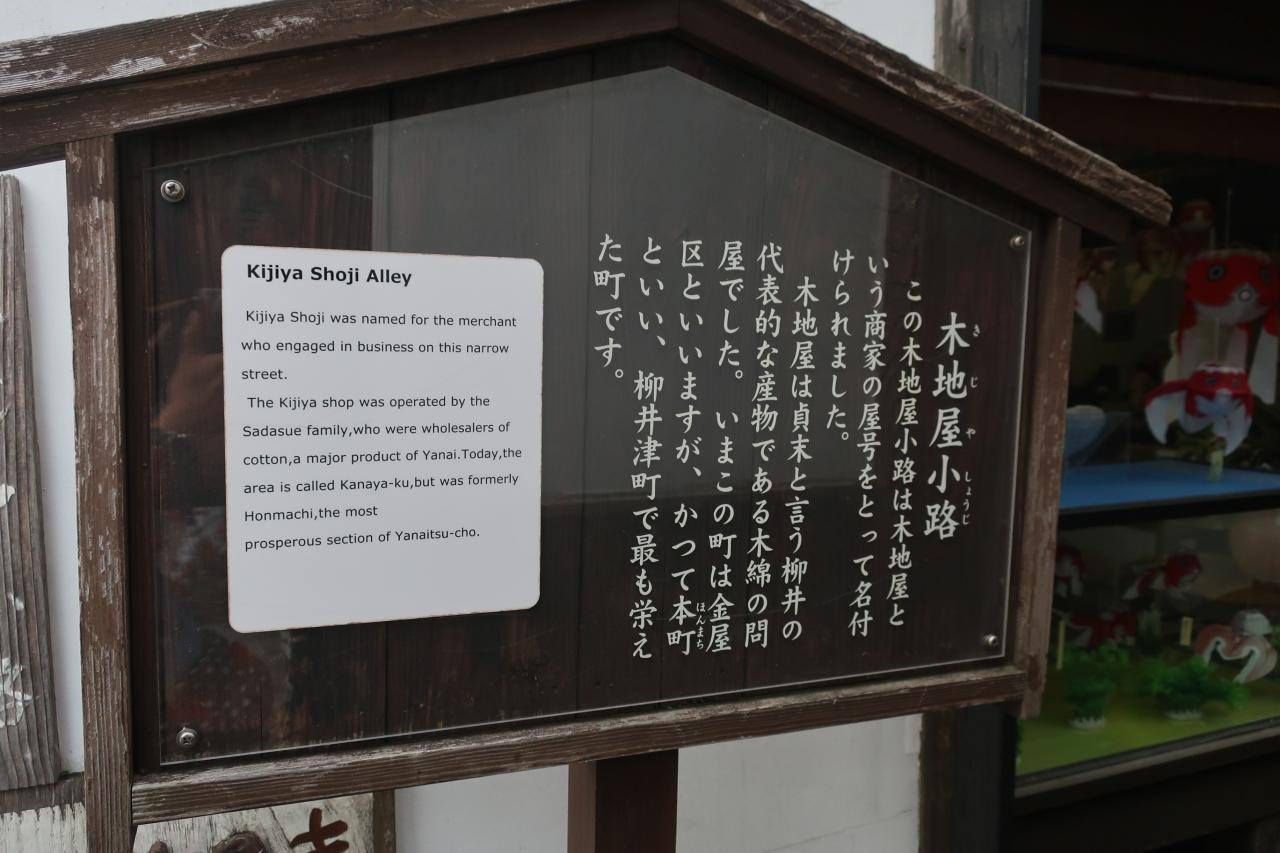 Kijiya Shoji Alley
Kijiya Shoji was named for the merchant
who engaged in business on this narrow
street.
The Kijiya shop was operated by the
Sadasue family,who were wholesalers of
cotton,a major product of Yanai.Today,the
area is called Kanaya-ku,but was formerly
Honmachi,the most
prosperous section of Yanaitsu-cho.
木地屋小路
きじやしょうじ
この木地屋小路は木地屋と
いう商家の屋号をとって名付
けられました。
木地屋は貞末と言う柳井の
代表的な産物である木綿の問
屋でした。いまこの町は金屋
区といいますが、かつて本町
ほんまち
といい、柳井津町で最も栄え
た町です。